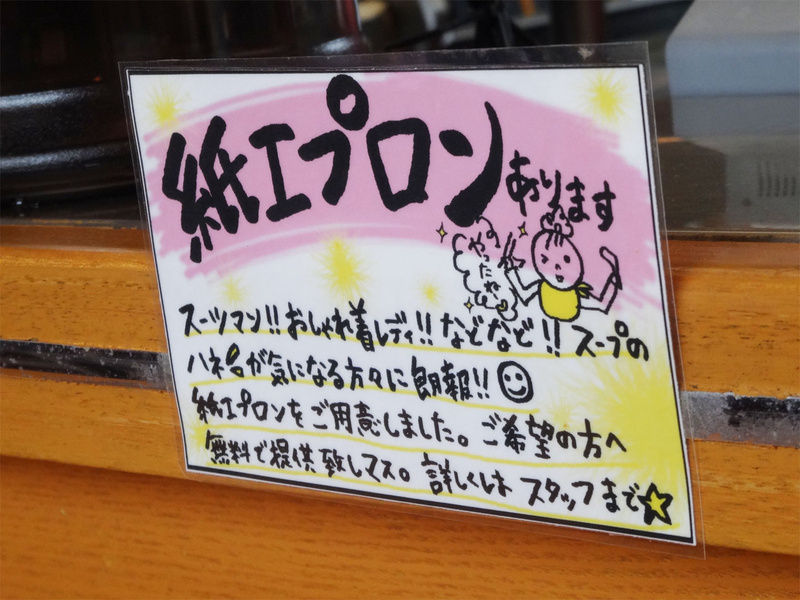 紙エプロン あります
やったや
スーツマン!! おしゃれ着レディ!! などなど!! スープの
ハネ が気になる方々に朗報!!
紙エプロンをご用意しました。ご希望の方へ
無料で提供致しマス。詳しくは スタッフまで☆